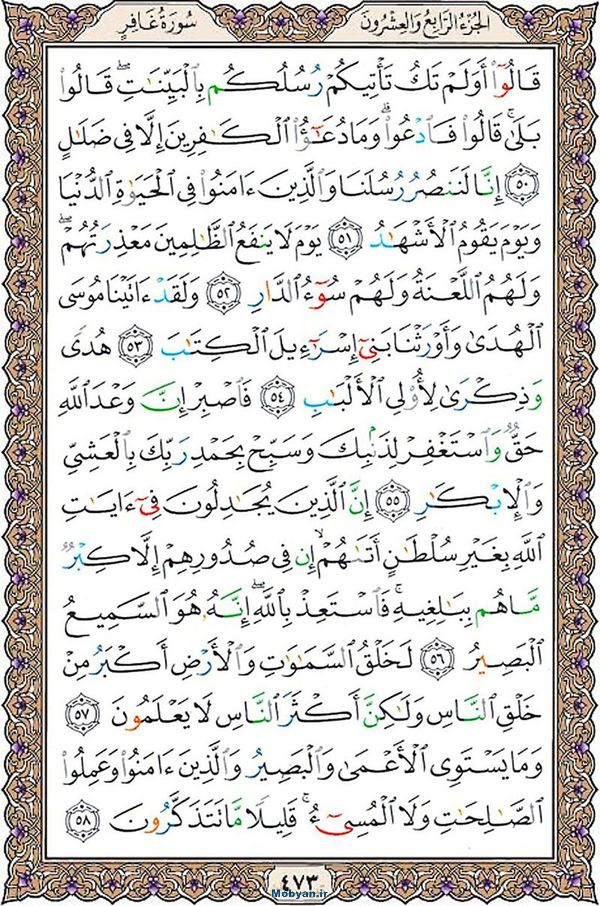 الجُزءُ الرَّابِعُ وَالعِشْرُونَ
سُورَةُ غَافِرٍ
قَالُوٓا۟ أَوَلَمْ تَكُ تَأْتِيكُمْ رُسُلُكُم بِالْبَيِّنَـٰتِ ۖ قَالُوا۟
بَلَىٰ ۚ قَالُوا۟ فَادْعُوا۟ ۗ وَمَا دُعَـٰٓؤُا۟ الْكَـٰفِرِينَ إِلَّا فِى ضَلَـٰلٍ
﴿٥٠﴾ إِنَّا لَنَنصُرُ رُسُلَنَا وَالَّذِينَ ءَامَنُوا۟ فِى الْحَيَوٰةِ الدُّنْيَا
وَيَوْمَ يَقُومُ الْأَشْهَـٰدُ ﴿٥١﴾ يَوْمَ لَا يَنفَعُ الظَّـٰلِمِينَ مَعْذِرَتُهُمْ ۖ
وَلَهُمُ اللَّعْنَةُ وَلَهُمْ سُوٓءُ الدَّارِ ﴿٥٢﴾ وَلَقَدْ ءَاتَيْنَا مُوسَى
الْهُدَىٰ وَأَوْرَثْنَا بَنِىٓ إِسْرَٰٓءِيلَ الْكِتَـٰبَ ﴿٥٣﴾ هُدًى
وَذِكْرَىٰ لِأُو۟لِى الْأَلْبَـٰبِ ﴿٥٤﴾ فَاصْبِرْ إِنَّ وَعْدَ اللَّهِ
حَقٌّ وَاسْتَغْفِرْ لِذَنۢبِكَ وَسَبِّحْ بِحَمْدِ رَبِّكَ بِالْعَشِىِّ
وَالْإِبْكَـٰرِ ﴿٥٥﴾ إِنَّ الَّذِينَ يُجَـٰدِلُونَ فِىٓ ءَايَـٰتِ
اللَّهِ بِغَيْرِ سُلْطَـٰنٍ أَتَىٰهُمْ ۙ إِن فِى صُدُورِهِمْ إِلَّا كِبْرٌ
مَّا هُم بِبَـٰلِغِيهِ ۚ فَاسْتَعِذْ بِاللَّهِ ۖ إِنَّهُۥ هُوَ السَّمِيعُ
الْبَصِيرُ ﴿٥٦﴾ لَخَلْقُ السَّمَـٰوَٰتِ وَالْأَرْضِ أَكْبَرُ مِنْ
خَلْقِ النَّاسِ وَلَـٰكِنَّ أَكْثَرَ النَّاسِ لَا يَعْلَمُونَ ﴿٥٧﴾
وَمَا يَسْتَوِى الْأَعْمَىٰ وَالْبَصِيرُ وَالَّذِينَ ءَامَنُوا۟ وَعَمِلُوا۟
الصَّـٰلِحَـٰتِ وَلَا الْمُسِىٓءُ ۚ قَلِيلًا مَّا تَتَذَكَّرُونَ ﴿٥٨﴾
٤٧٣
Mobyan.ir